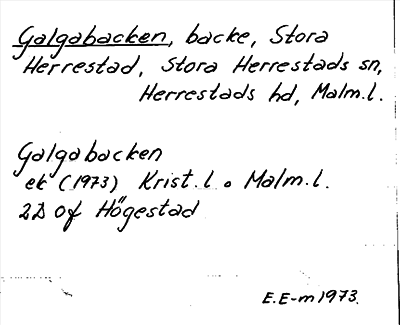 Galgabacken, backe, Stora
Herrestad, Stora Herrestads sn,
Herrestads hd, Malm.l.
Galgabacken
ek (1973) Krist.l o Malm.l.
2D 0f Högestad
E.E-m 1973.